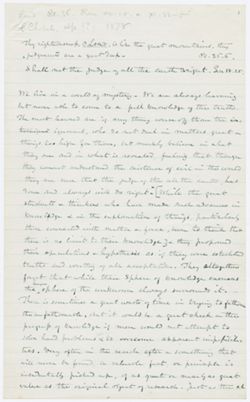 Thy righteousness is like the great mountains: thy
judgments are a great deep. Ps. 36.6.
Shall not the judge of all the earth do right. Gen. 18.25.
We live in a world of mystery. We are always learning
but never able to come to a full knowledge of the truth.
The most learned are if any thing worse off than the
ignorant, who do not deal in matters
too high for them, but merely believe in what
they see and in what is revealed, feeling that though
they cannot understand the existence of evil in the world
they are sure that the judge of all the earth has
done and always will do right. While the great
students & thinkers who have made such advances in
knowledge & in the explanation of things, particularly
those connected with matter & force, seem to think that
there is no limit to their knowledge & they propound
their speculations & hypothesis as if they were established
truths and worthy of all acceptation. They altogether
forget that while their sphere of knowledge increases
the sphere of the unknown always surrounds it.
There is sometimes a great waste of time in trying to fathom
the unfathomable, but it would be a great check in the
progress of knowledge if men would not attempt to
solve hard problems & to overcome apparent impossibilities.
Very often in the search after a something that
will never be found, a valuable fact or principle is
incidentally picked up, of as great or nearly as great
value as the original object of research. Just as the